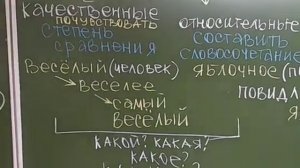 качественные
почувствовать
степень
сравнения
Весёлый (человек)
веселее
самый
весёлый
относительные
составить
словосочетание
яблочное (п
повидл
я
КАКОЙ? КАКАЯ?
КАКОЕ?